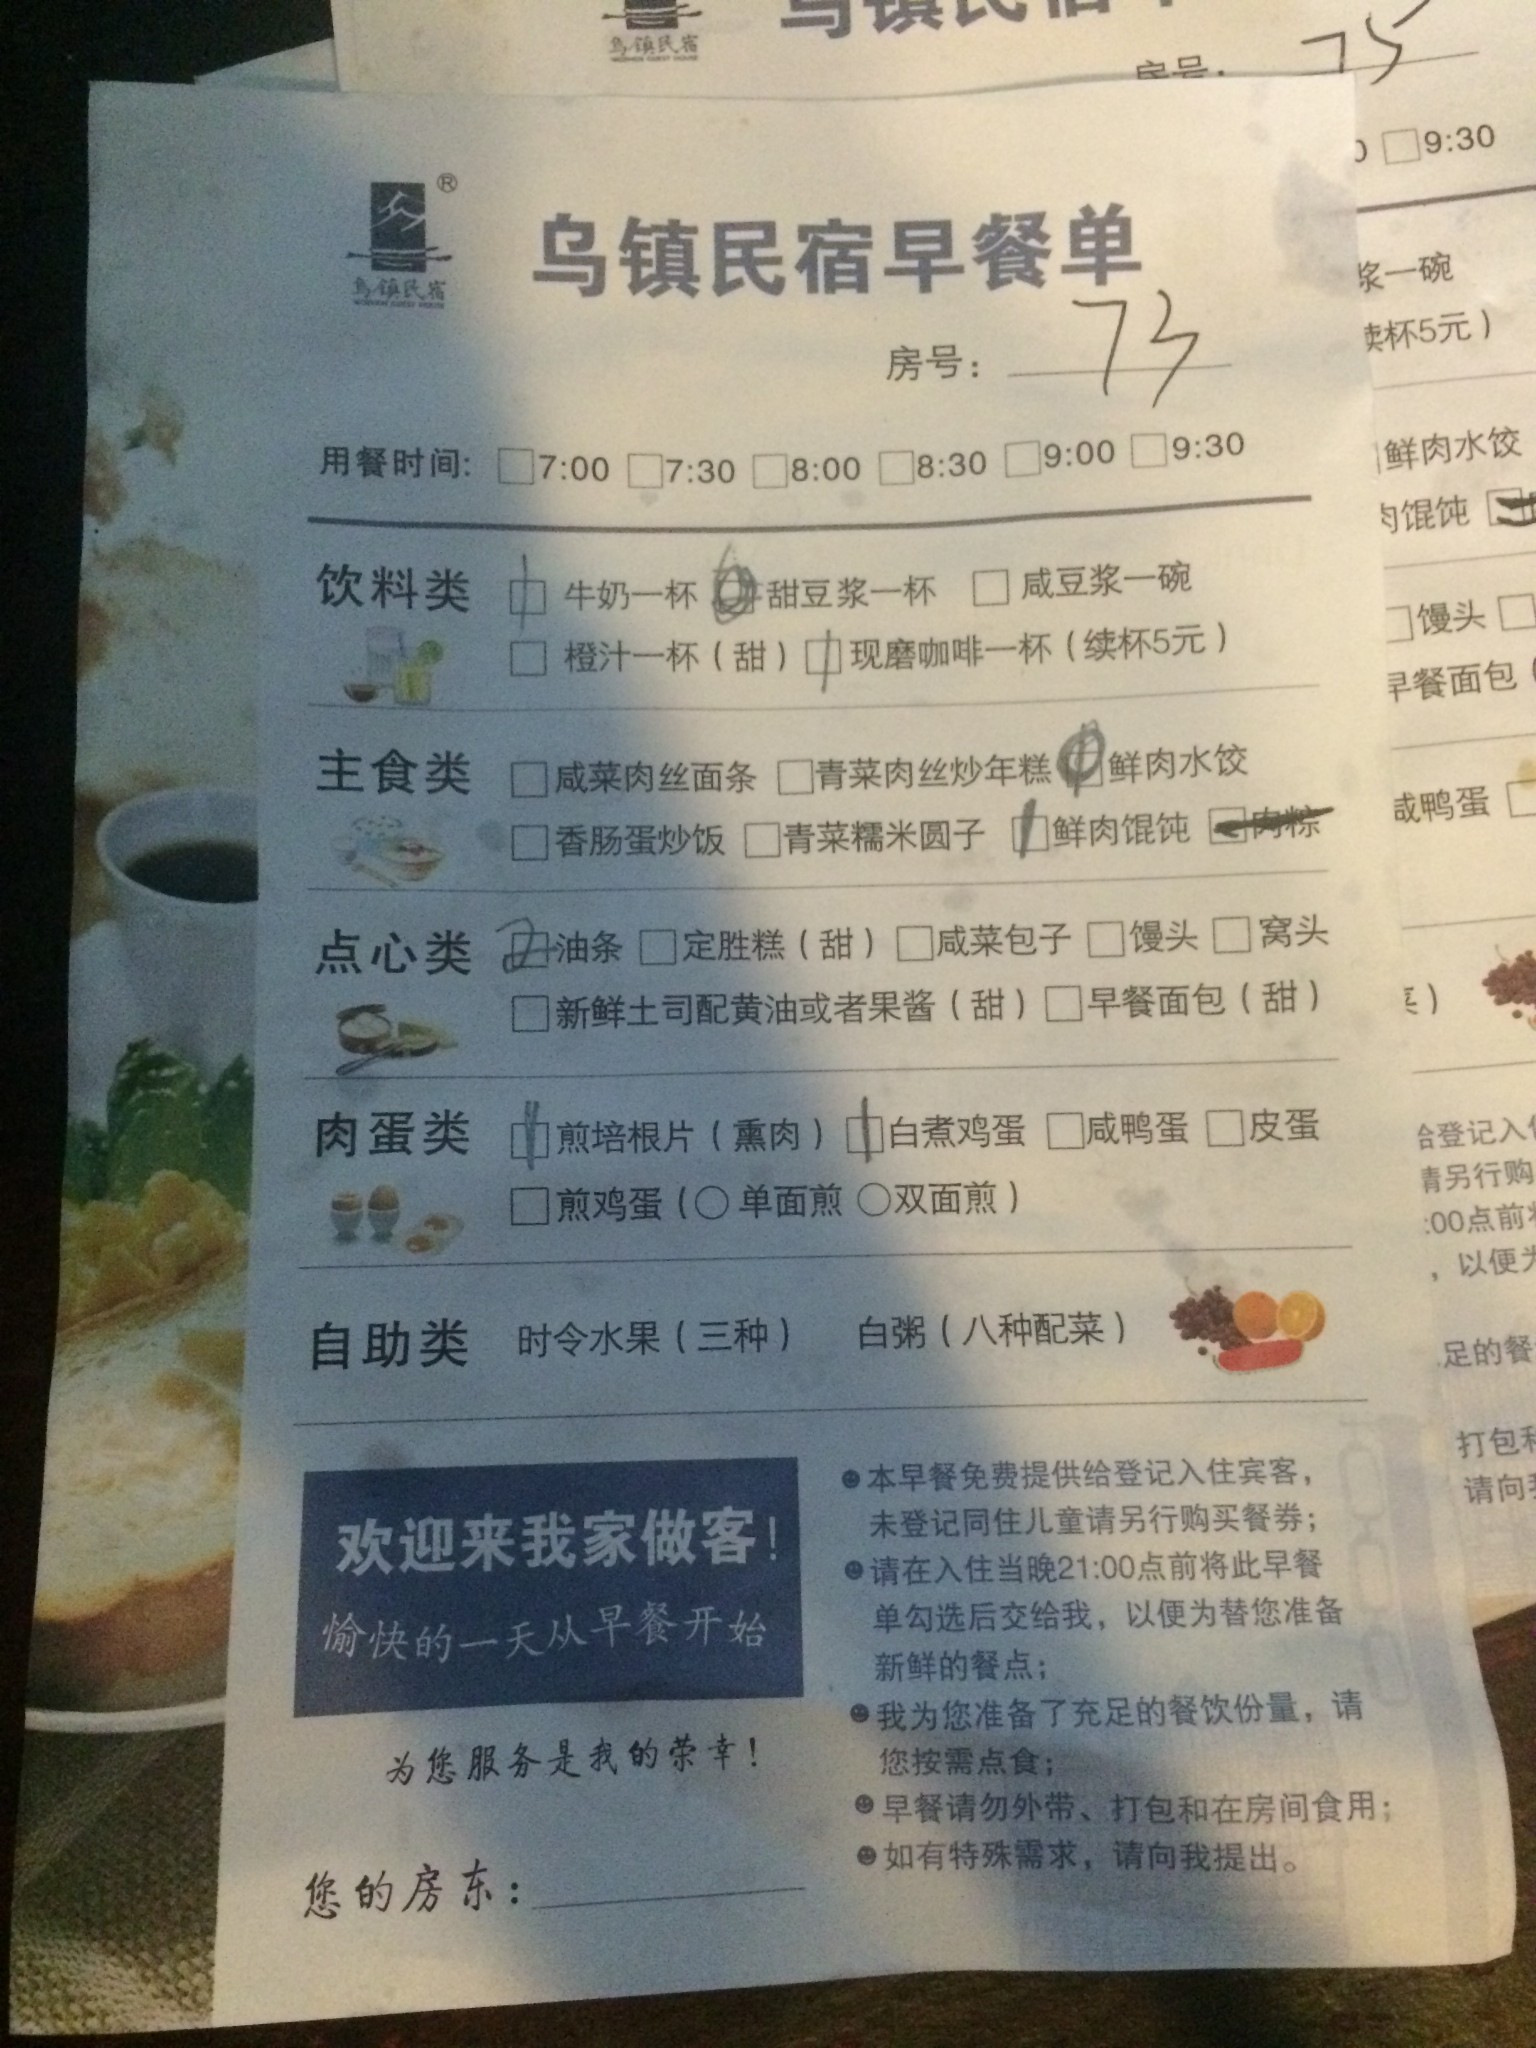 乌镇民宿早
乌镇民宿
房号: 73
9:30
®
乌镇民宿
WUZHEN GUEST HOUSE
乌镇民宿早餐单
房号: 73
用餐时间: □7:00 □7:30 □8:00 □8:30 □9:00 □9:30
饮料类 □ 牛奶一杯 □甜豆浆一杯 □ 咸豆浆一碗
□ 橙汁一杯(甜) □现磨咖啡一杯(续杯5元)
主食类 □咸菜肉丝面条 □青菜肉丝炒年糕 □鲜肉水饺
□香肠蛋炒饭 □青菜糯米圆子 □鲜肉馄饨 □肉粽
点心类 2 □油条 □定胜糕(甜) □咸菜包子 □馒头 □窝头
□新鲜土司配黄油或者果酱(甜) □早餐面包(甜)
肉蛋类 □煎培根片(熏肉) □白煮鸡蛋 □咸鸭蛋 □皮蛋
□煎鸡蛋(○ 单面煎 ○双面煎)
自助类 时令水果(三种) 白粥(八种配菜)
欢迎来我家做客!
愉快的一天从早餐开始
为您服务是我的荣幸!
您的房东:
本早餐免费提供给登记入住宾客,
未登记同住儿童请另行购买餐券;
请在入住当晚21:00点前将此早餐
单勾选后交给我,以便为替您准备
新鲜的餐点;
我为您准备了充足的餐饮份量,请
您按需点食;
早餐请勿外带、打包和在房间食用;
如有特殊需求,请向我提出。
浆一碗
续杯5元)
鲜肉水饺
肉馄饨
□馒头
早餐面包(
咸鸭蛋
菜)
给登记入住
请另行购
:00点前将
,以便为
足的餐
打包和
请向我